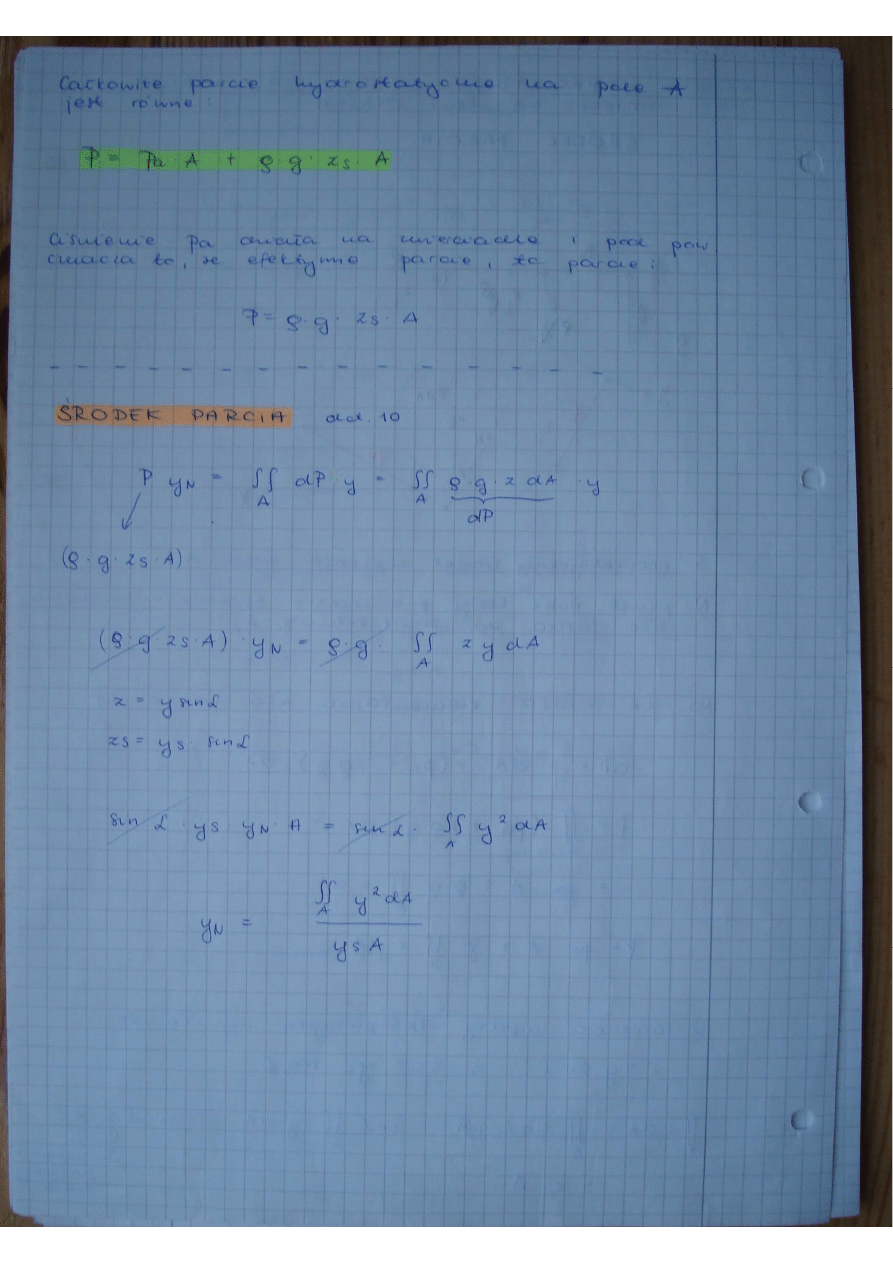 Całkowite parcie hydrostatyczne na pole A
jest równe:
P = Pa · A + ρ · g · zs · A
Ciśnienie Pa działa na zwierciadło i pod pow
oznacza to, że efektywne parcie, to parcie:
P = ρ · g · zs · A
ŚRODEK PARCIA ad. 10
P yN = ∬A dP · y = ∬A ρ · g · z dA · y
dP
(ρ · g · zs · A)
(ρ · g · zs · A) · yN = ρ · g · ∬A z y dA
z = y sinα
zs = ys · sinα
sin α · ys yN · A = sin α · ∬A y² dA
yN = ∬A y² dA
ys A